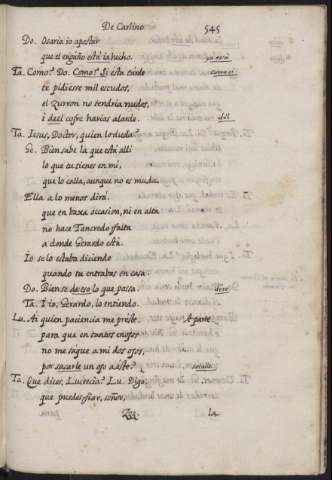 De Carlino 545
Do. Osaria io apostar
que el engaño està ia hecho.
Ta. Como? Do. Como? Si esta tarde
te pidiesse mil escudos,
el zurron no tendria nudos,
i deel cofre harias alarde. del
Ta. Iesus, Doctor, quien lo duda?
Ge. Bien sabe la que està alli
lo que tu tienes en mi,
que lo calla, aunque no es muda.
Ella a lo menor dirà.
que en baxa occasion, ni en alta
no hace Tancredo falta
a donde Gerardo està.
Io se lo estaba diciendo
quando tu entrabas en casa.
Do. Bien se lo que passa.
Ta. I io, Gerardo, lo entiendo.
Lu. Ai quien paciencia me preste A parte
para que en tantos enojos
no me saque a mi dos ojos,
por sacarle un ojo a este?
Ta. Que dices, Lucrecia? Lu. Digo,
que puedes fiar, señor,
Zzz la